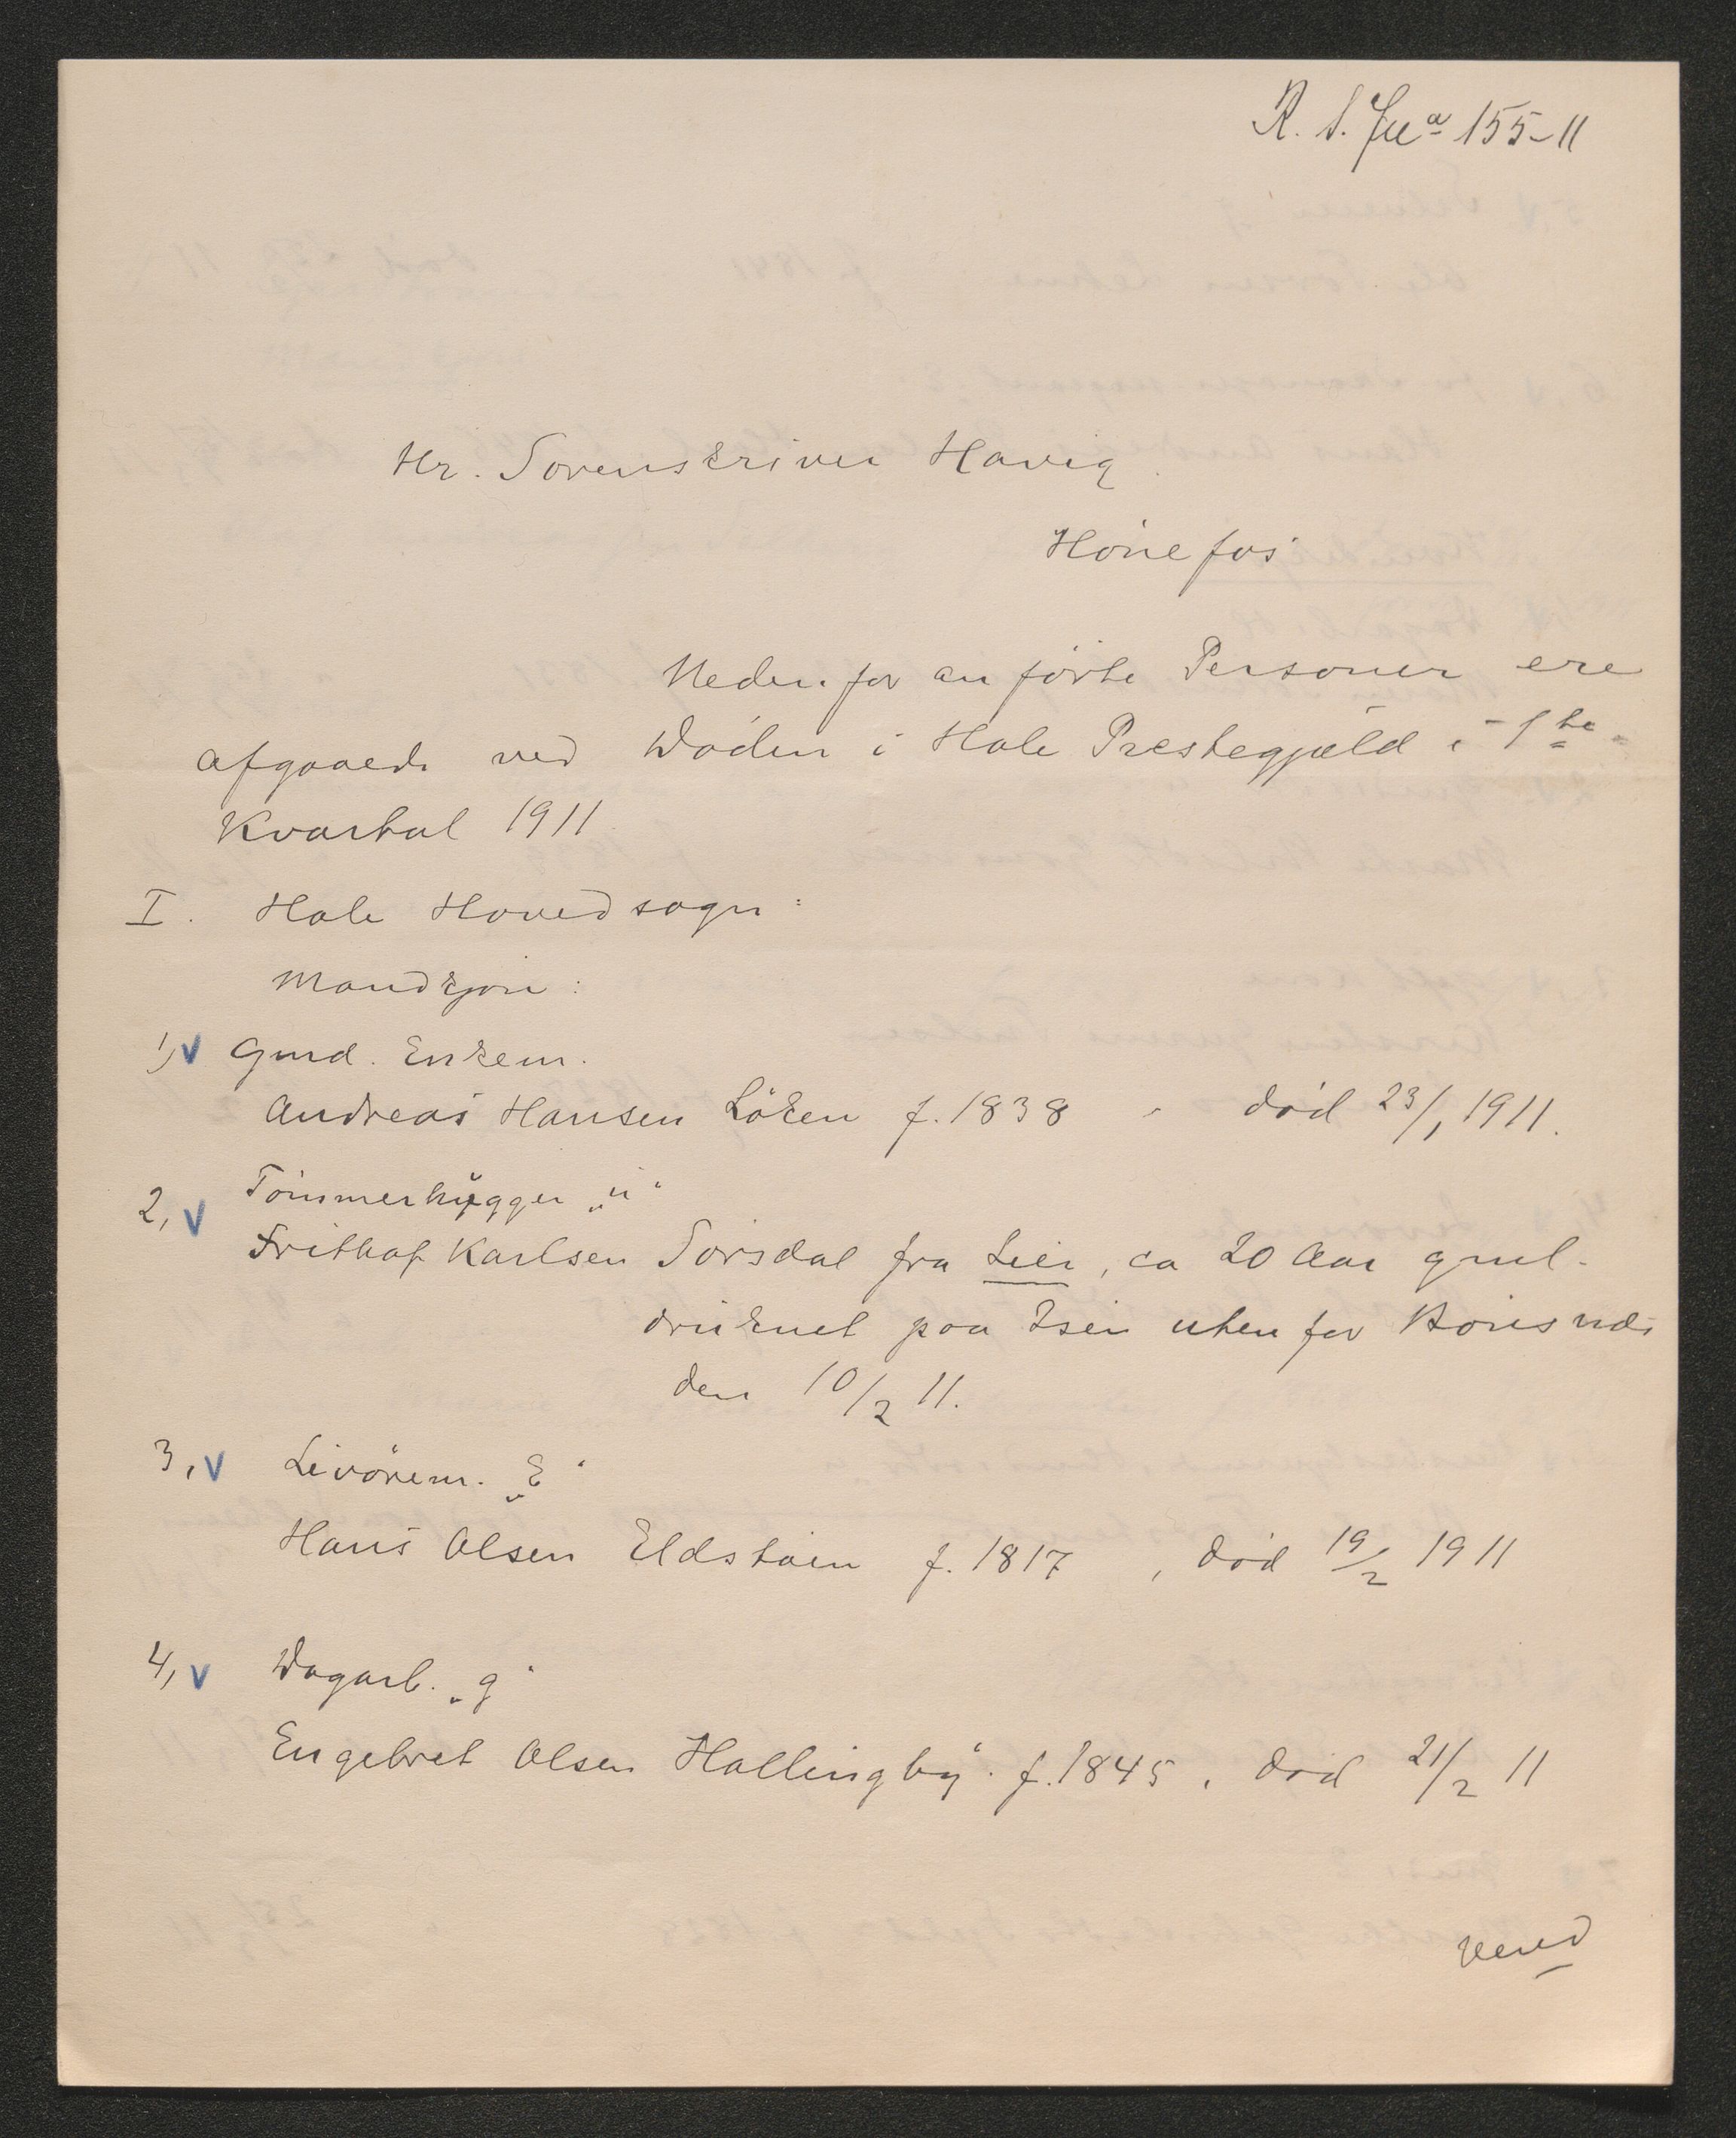 155-11
Hr. Sorenskriver Havig
Hönefos
Nedenfor anförte Personer ere
afgaaede ved Döden i Hole Prestegjæld i 1ste
Kvartal 1911
I. Hole Hovedsogn:
Mandkjön:
1, V Gmd. Enkem.
Andreas Hansen Löken f. 1838 død 23/1 1911.
2, V Tömmerhugger „u"
Frithof Karlsen Sörsdal fra Lier, ca 20 Aar gml.
druknet paa Isen utenfor Bönsnæs
den 10/2 11.
3, V Livörem. „E"
Hans Olsen Eldstöen f. 1817, död 19/2 1911
4, V Dagarb. „g"
Engebret Olsen Hallingby. f. 1845, död 21/2 11
Vend